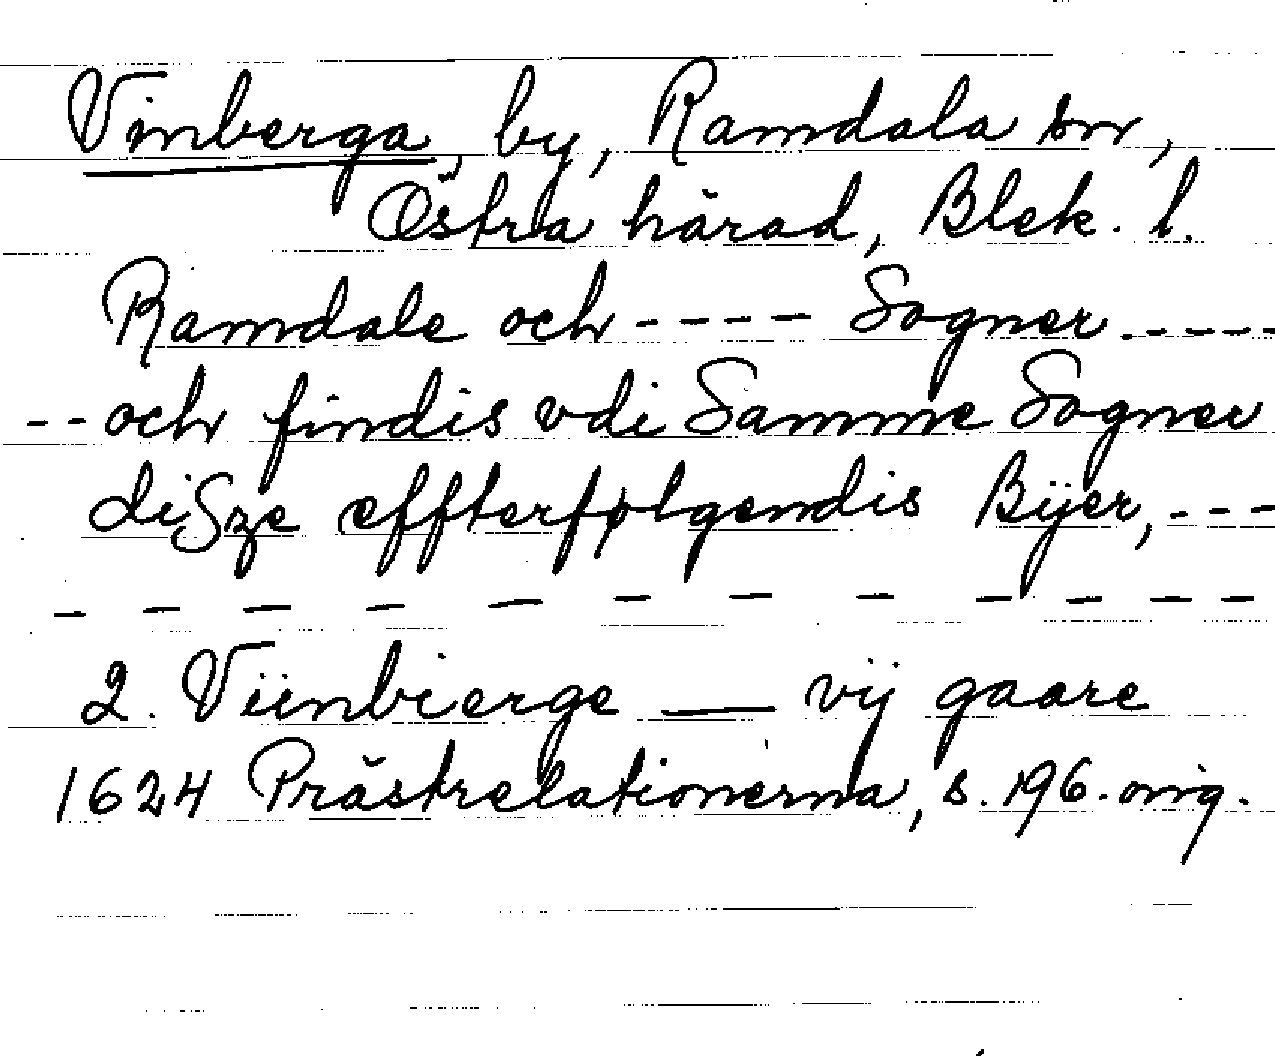 Vinberga, by, Ramdala sn,
Östra härad, Blek. l.
Ramdale och ---- Sogner ----
-- och findis vdi Samme Sogner
disze effterfølgendis Bÿer, ---
— — — — — — — — — — — —
2. Viinbierge — vij gaare
1624 Prästrelationerna, s. 196. orig.